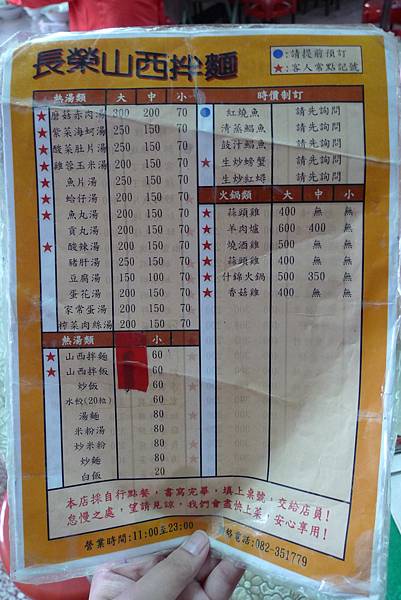 長榮山西拌麵
●:請提前預訂
★:客人常點記號
熱湯類 大 中 小
★ 蘑菇赤肉湯 300 200 70
★ 紫菜海蚵湯 250 150 70
★ 酸菜肚片湯 250 150 70
★ 雞蓉玉米湯 200 150 70
★ 魚片湯 250 150 70
★ 蛤仔湯 200 150 70
★ 魚丸湯 200 150 70
貢丸湯 200 150 70
★ 酸辣湯 200 150 70
豬肝湯 250 150 70
豆腐湯 150 100 70
蛋花湯 200 150 70
家常蛋湯 200 150 70
榨菜肉絲湯 200 150 70
熱湯類 小
★ 山西拌麵 60
★ 山西拌飯 60
炒飯 60
水餃(20粒) 60
湯麵 80
米粉湯 80
炒米粉 80
炒麵 80
白飯 20
時價制訂
● 紅燒魚 請先詢問
清蒸鯧魚 請先詢問
豉汁鯧魚 請先詢問
★ 生炒螃蟹 請先詢問
生炒紅蟳 請先詢問
火鍋類 大 中 小
★ 蒜頭雞 400 無 無
★ 羊肉爐 600 400 無
★ 燒酒雞 500 無 無
★ 蒜頭雞 400 無 無
★ 什錦火鍋 500 350 無
香菇雞 400 無 無
本店採自行點餐，書寫完畢，填上桌號，交給店員!
怠慢之處，望請見諒，我們會盡快上菜，安心享用!
營業時間:11:00至23:00
絡電話:082-351779